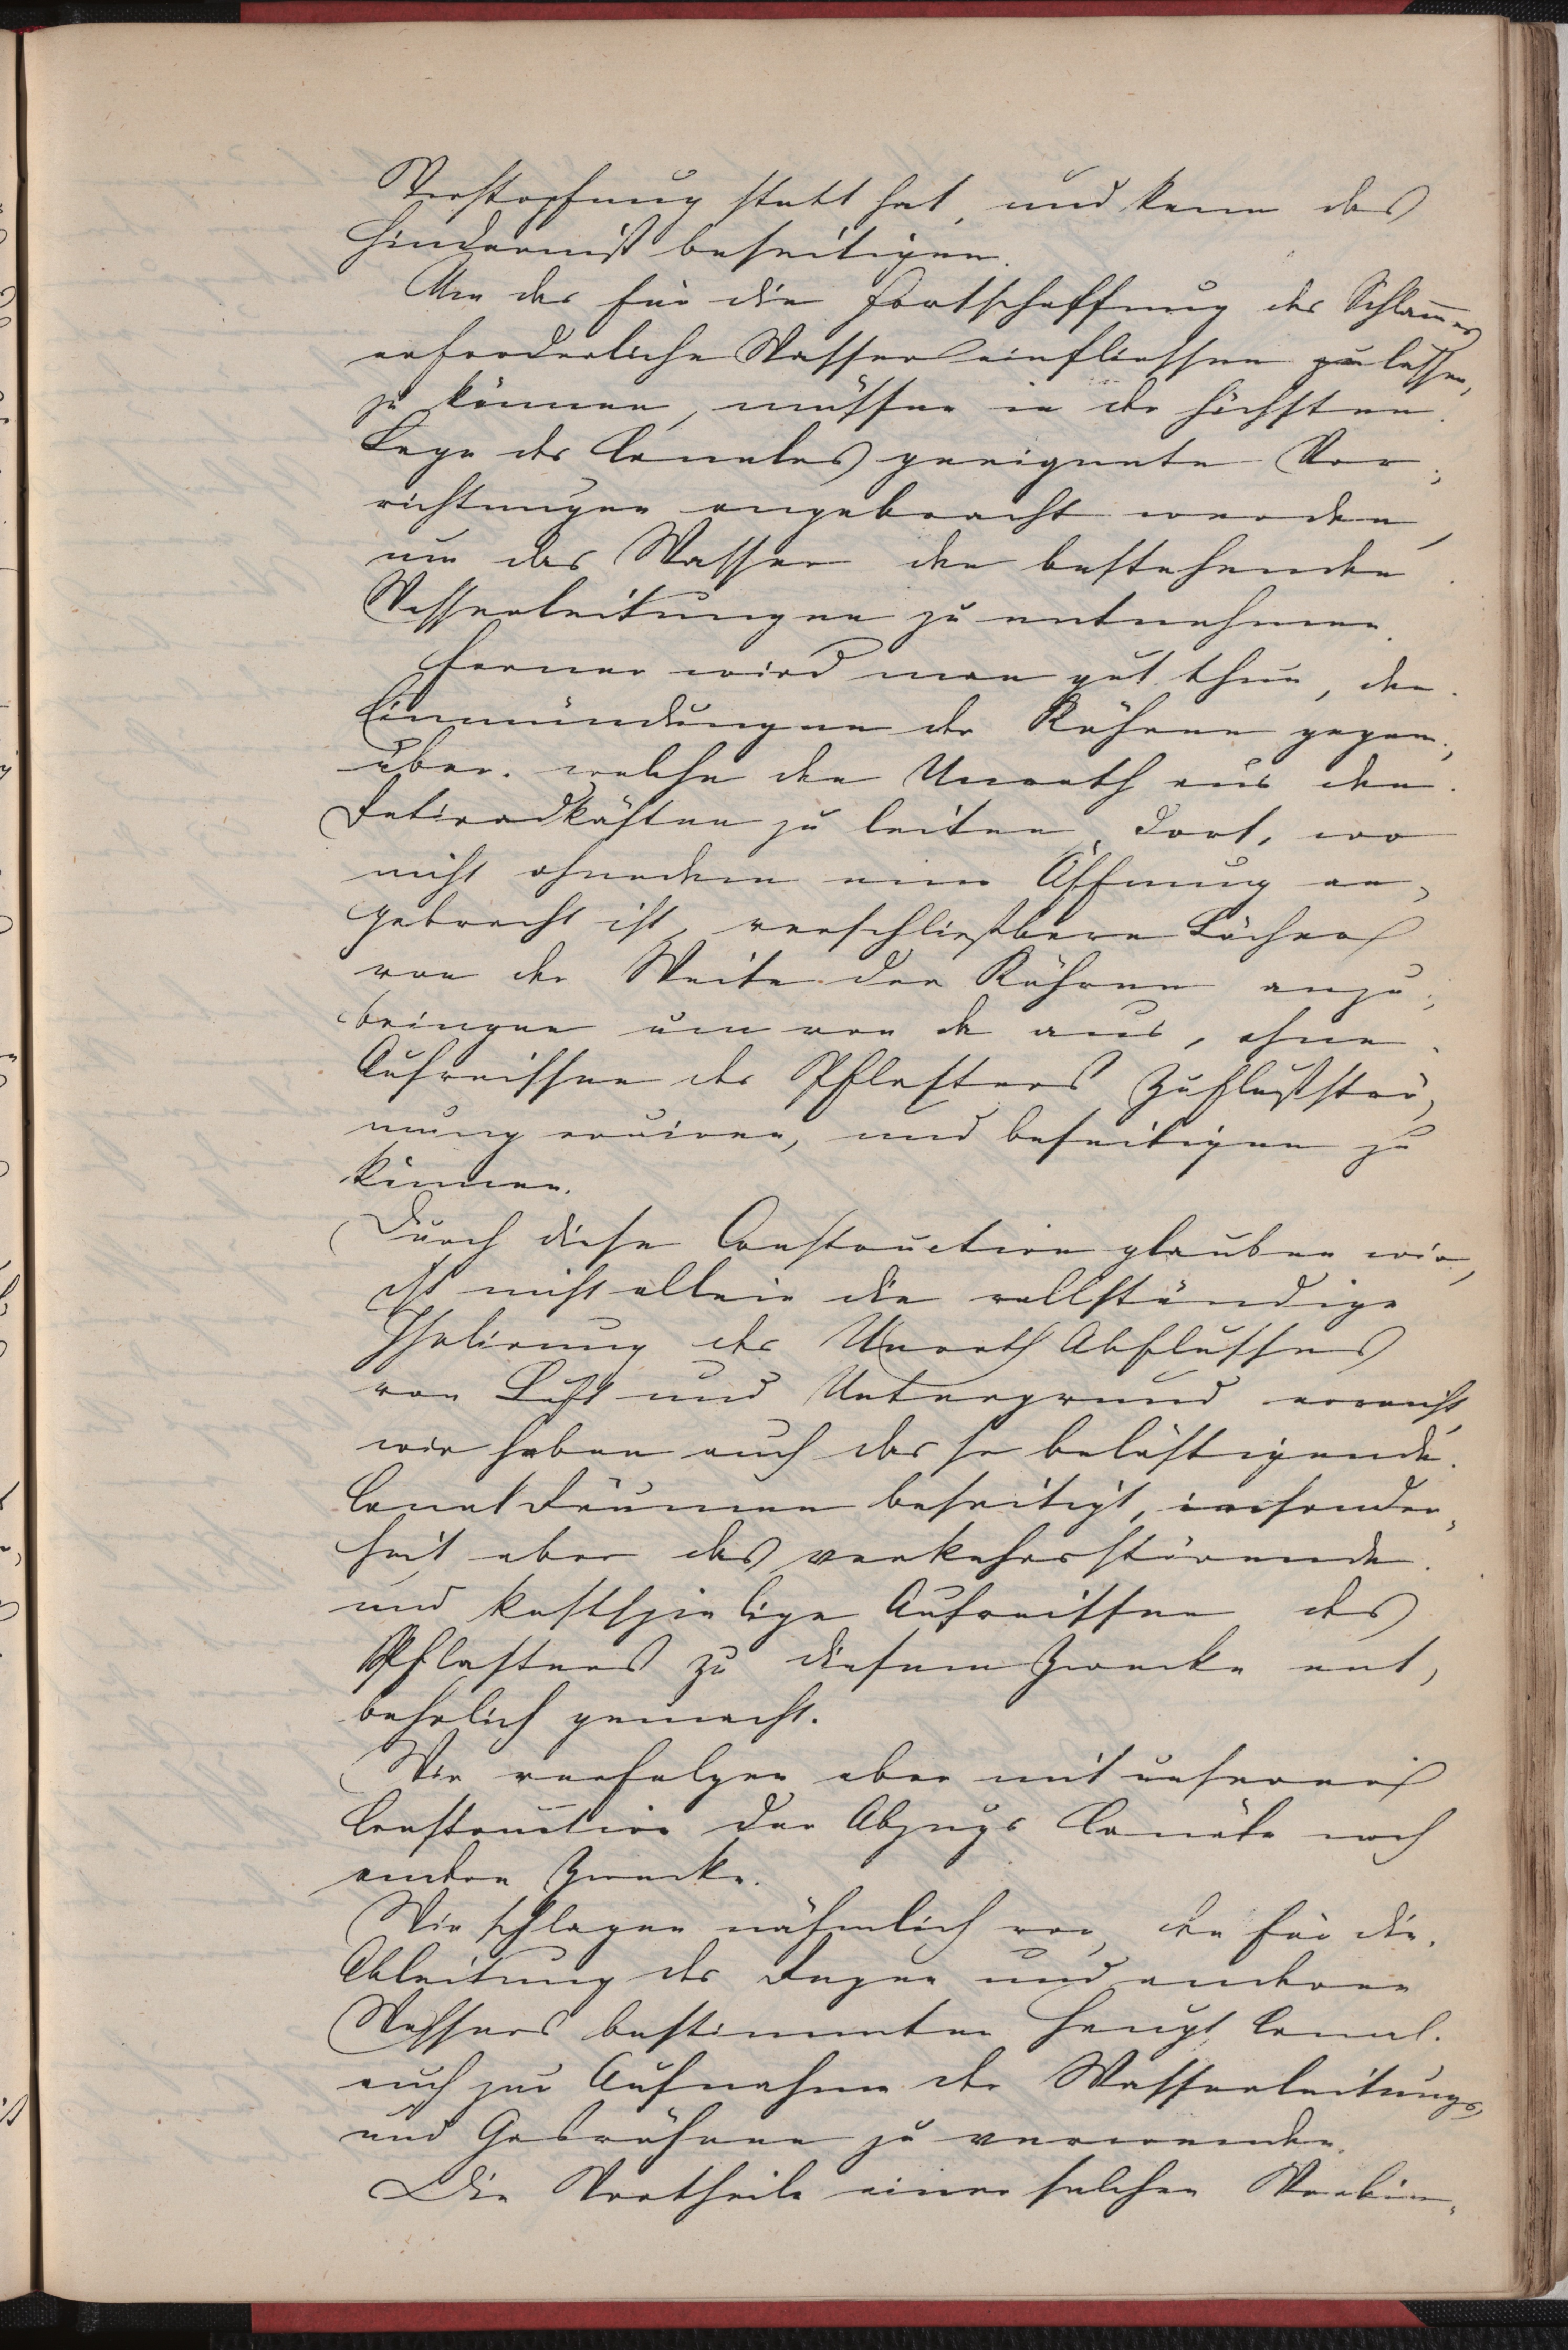 Verstopfung statt hat, und kann das
Hinderniß beseitigen.
Um das für die Fortschaffung des Schlam̅es
erforderliche Wasser einfliessen zu lassen,
zu können, müssen in der höchsten
Lage des Canales geeignete Vor-
richtungen angebracht werden,
um das Wasser den bestehenden
Wasserleitungen zu entnehmen.
Ferner wird man gut thun, den
Einmündungen der Röhren gegen-
über. welche den Unrath aus den
Retiradkästen zu leiten, dort, wo
nicht ohnedem eine Öffnung an-
gebracht ist, verschließbare Löcher
von der Weite der Röhren anzu-
bringen um von da aus, ohne
Aufreissen des Pflasters Zuflußströ-
mung eruiren, und beseitigen zu
können.
Durch diese Construction glauben wir,
ist nicht allein die vollständige
Isolirung des Unrath Abflusses
von Luft und Untergrund erreicht,
wir haben auch das so belästigende
Canal Räumen beseitigt, insonder-
heit aber das verkehrsstörende
und kostspielige Aufreissen des
Pflasters zu diesem Zwecke ent-
behrlich gemacht.
Wir verfolgen aber mit unserer
Construction der Abzugs Canäle noch
andere Zwecke.
Wir schlagen nähmlich vor, den für die
Ableitung des Regen und anderen
Wassers bestimmten Haupt Canal.
auch zur Aufnahme der Wasserleitungs-
und Gasröhren zu verwenden.
Die Vortheile einer solchen Verbin-